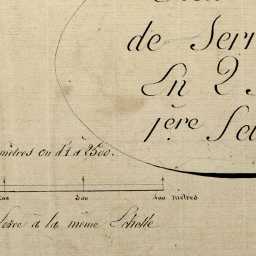 de Serr
En 2
1ère Se
mètres ou d'1 à 2500.
200 400 mètres
à la même Echelle